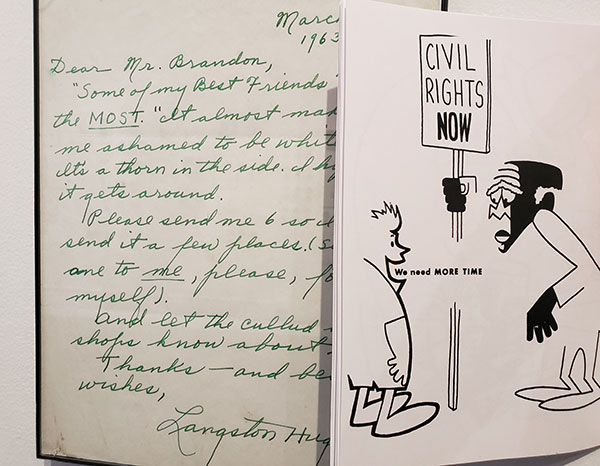 March
1963
Dear Mr. Brandon,
"Some of my Best Friends
the MOST. "It almost
me ashamed to be
It's a thorn in the side. I
it gets around.
Please send me 6 so
send it a few places. (
one to me, please,
myself).
And let the cullud
shops know about
Thanks — and
wishes,
Langston
CIVIL
RIGHTS
NOW
We need MORE TIME